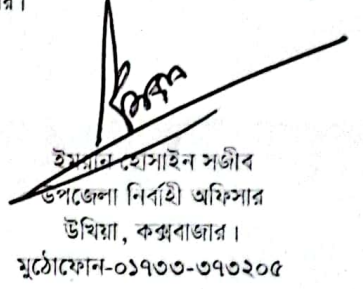 ইমরান হোসাইন সজীব
উপজেলা নির্বাহী অফিসার
উখিয়া, কক্সবাজার।
মুঠোফোন-০১৭৩৩-৩৭৩২০৫